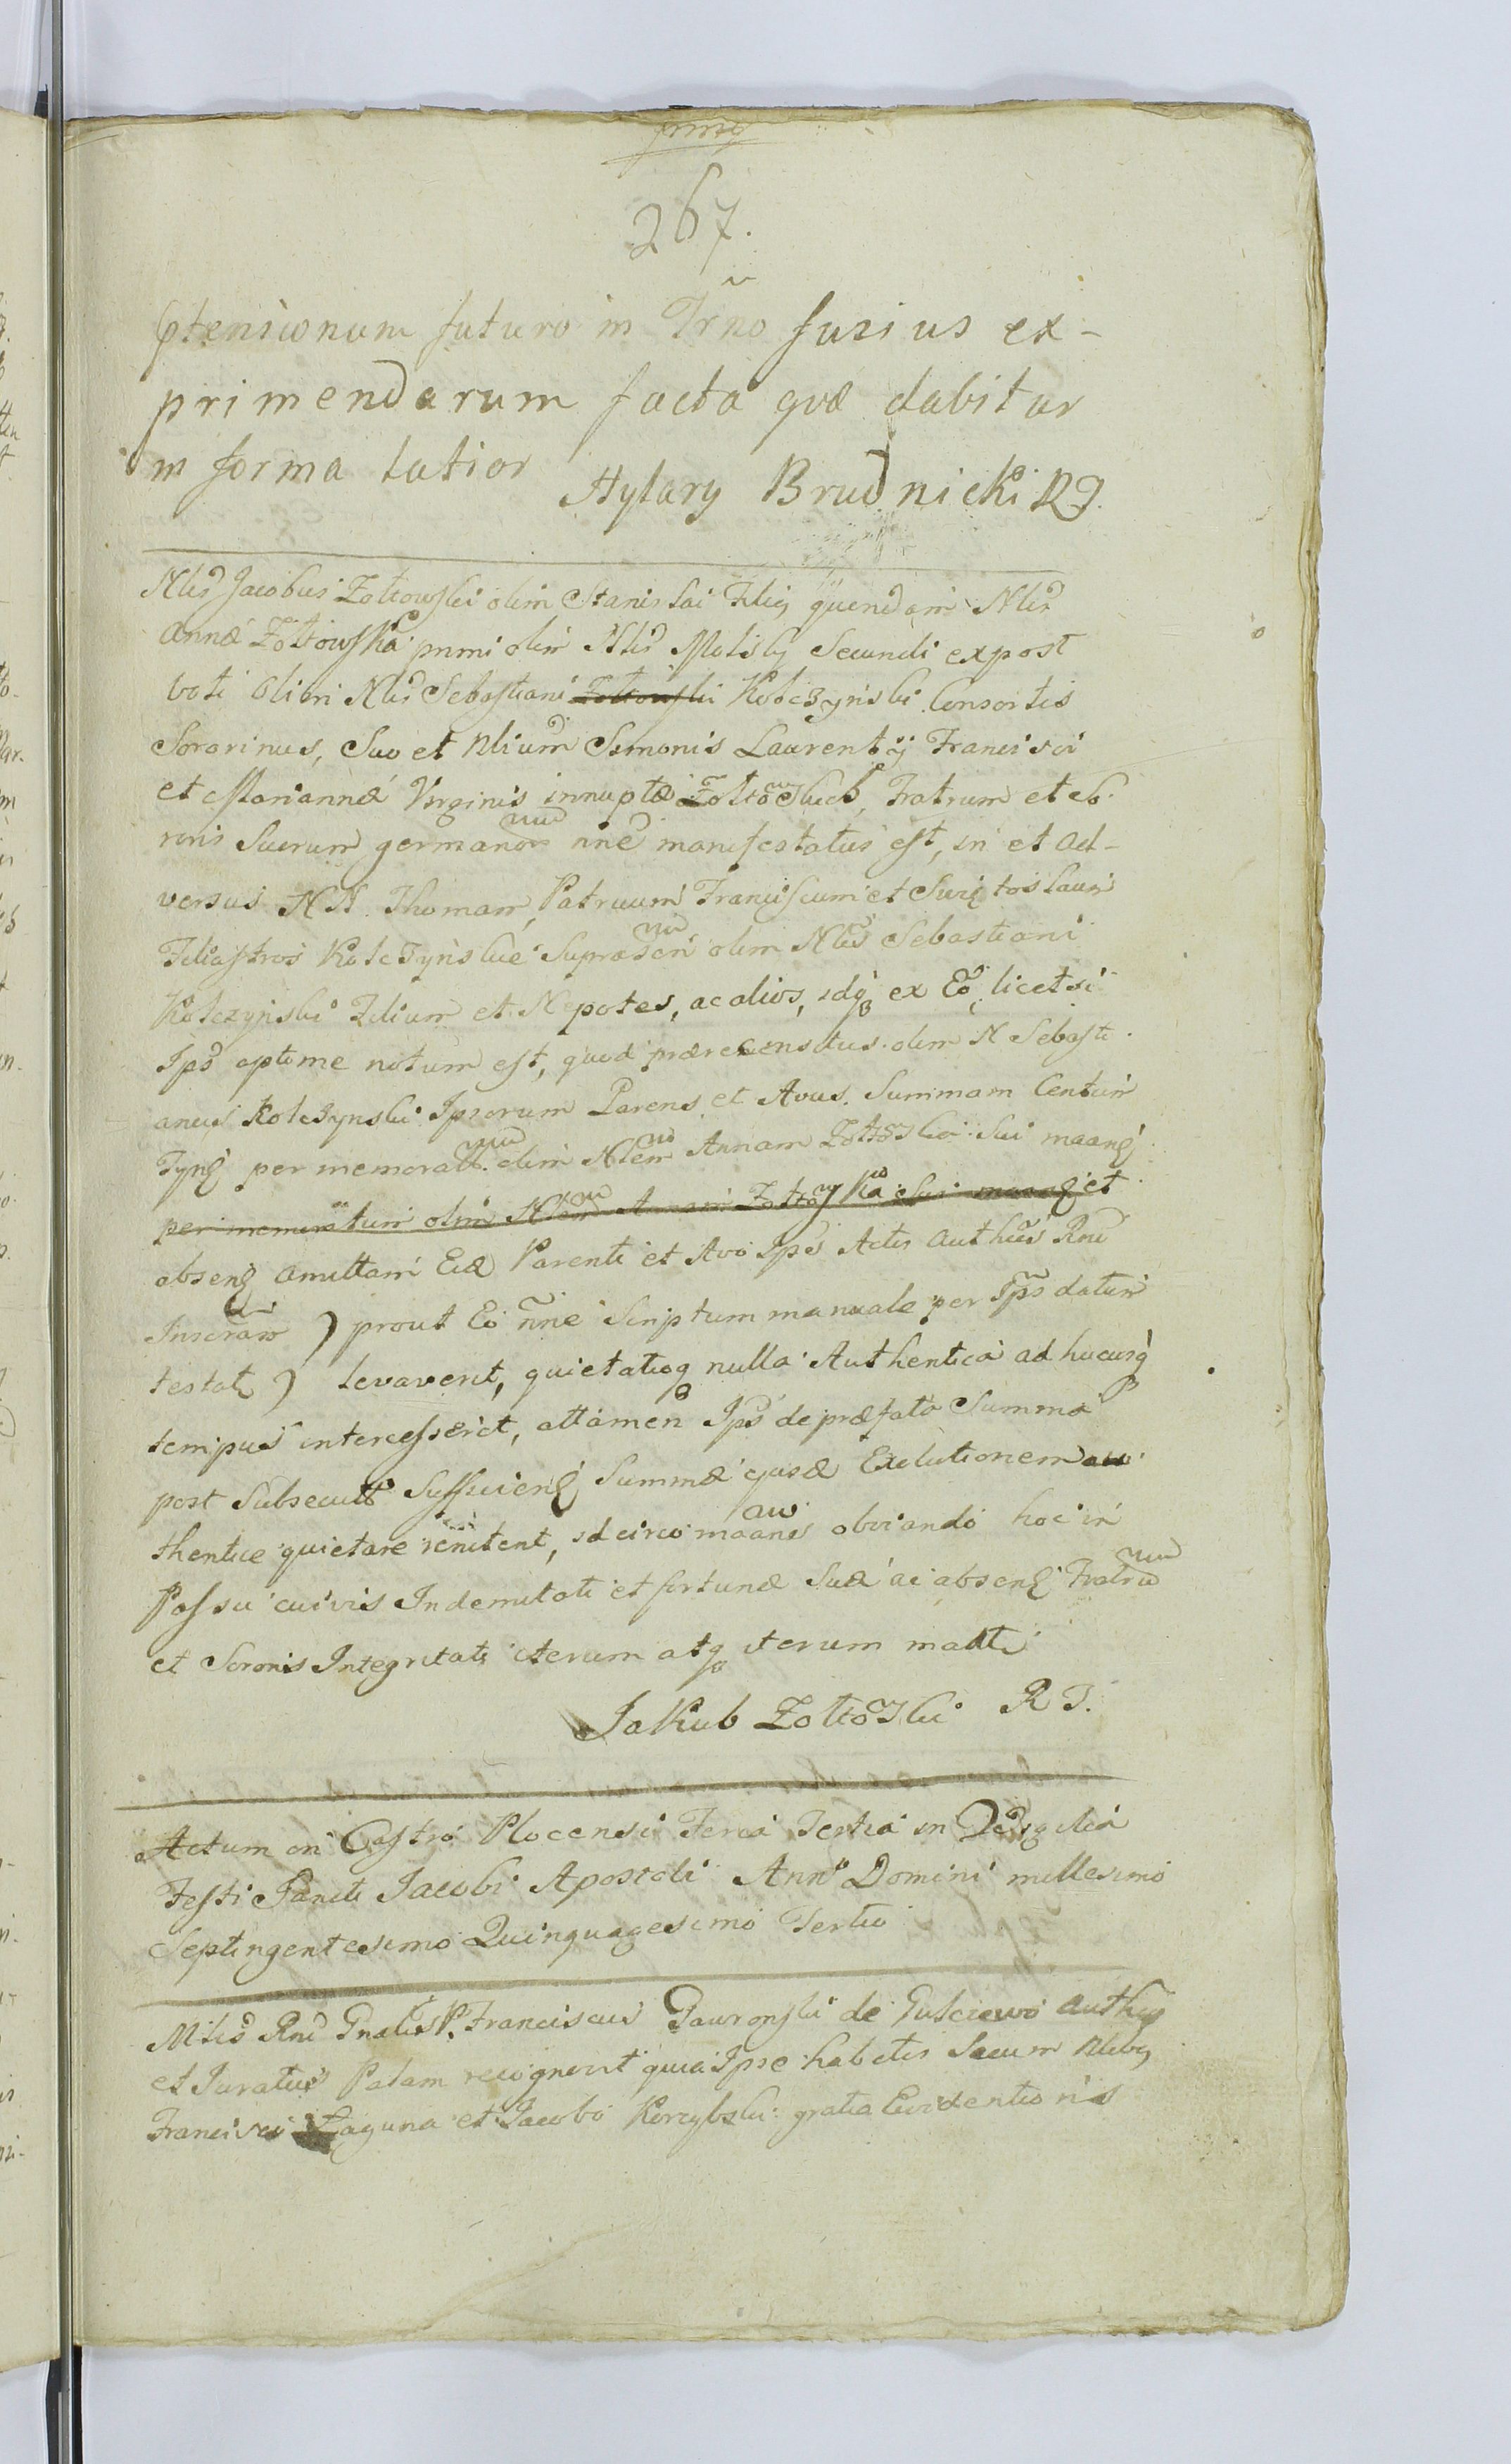 267.
ptensionum futuro in Trno fusius ex-
primendarum facta qvæ dabitur
in forma latior Hylary Brudnicki RJ.
Nlis Jacobus Zołtowski olim Stanislai Filius quendam Nlis
Annæ Zołtowska primi olim Nlis Secundi expost
voti Olim Nlis Sebastiani Zołtowski Kołczynski Consortis
Sororinus, Suo et Nlium Simonis Laurentij Francisci
et Mariannæ Virginis innuptæ Zołtowskich, Fratrum et So-
roris Suorum germanor nne manifestatus est, in et ad-
versus NN. Thomam, Patruum Franciscum et
Filiastros Kołczynskie olim Nlis Sebastiani
Kołczynski Filium et Nepotes, ac alios, idq ex Eo, licet si
Ips optime notum est, quod prærecensitus olim N Sebasti-
anus Kołczynski Ipsorum Parens et Avus Summam Centum
Tynf per memorat olim Nlem Annam Zołtoska Sui maang
per memoratum olim Nlem Annam Zołtoska Sui maang et
abseng Amittam Eid Parenti et Avo Ips Actis Authcis Rnu
) prout Eo nne Scriptum manuale per Ips datum
testat) levaverit, quietatioq nulla Authentica ad hucusq
tempus intercesserit, attamen Ips de præfata Summa
post Subsecut Sufficieng Summæ ejusd Exolutionem au
thentice quietare renitent, idcirco maanes obviando hoc in
Passu cuivis Indemnitati et fortunæ Suæ ac abseng Fratru
et Sororis Integritati iterum atq iterum
Jakub Zołtoski RJ.
Actum in Castro Plocensi Feria Tertia in Vigilia
Festi Sancti Jacobi Apostoli Anno Domini millesimo
Septingentesimo Quinquagesimo Tertio
Mtis Rni Gnalis P. Franciscus Gauronski de Gulciewo Authus
et Juratus Palam recognovit quia Ipse habitis Secum Nlibus
Francisci Łaguna et Jacobo Korzybski gratia Evidentioris